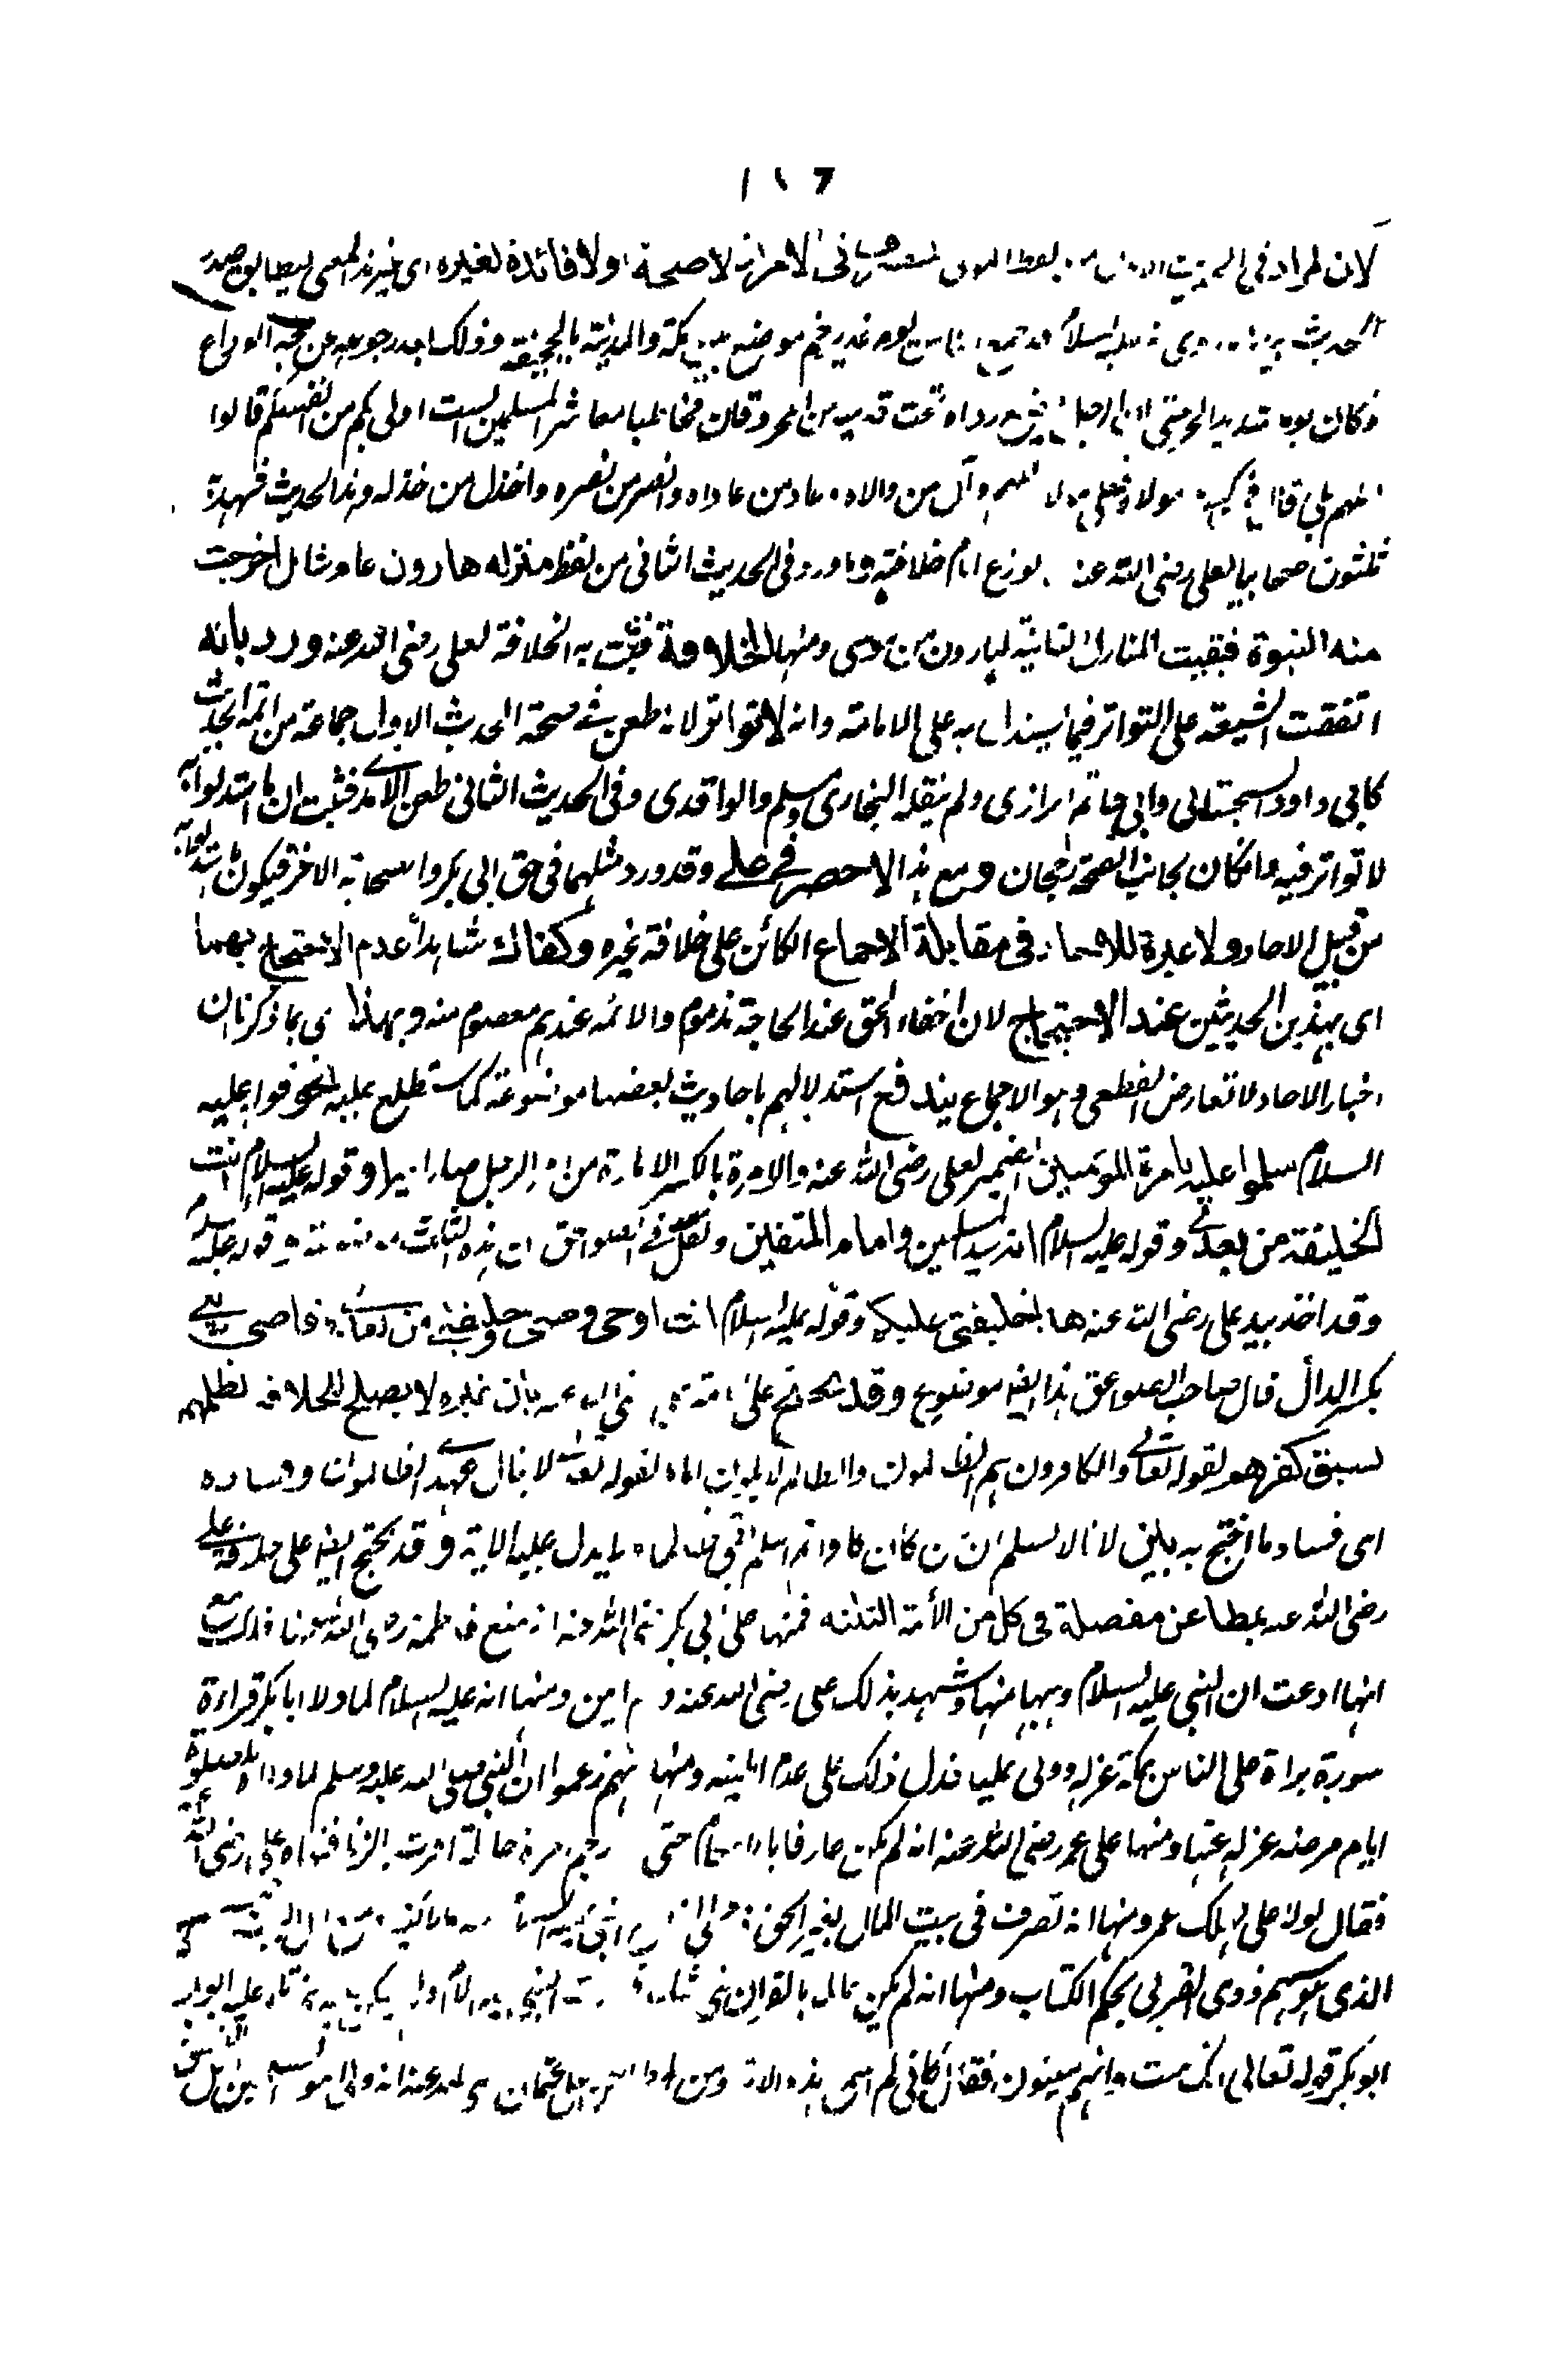 ١١٦
لان المراد فى الحديث الاول من لفظ المولى المتصرف فى الامر اذ لا صحة اولا فائدة لغيره اى غير هذا المعنى ليطابق صدر
الحديث عليه السلام قد جمع الناس يوم غدير خم موضع بين مكة والمدينة بالجحفة وذلك بعد رجوعه عن حجة الوداع
وكان يوما شديد الحر حتى ان الرجل ليضع رداءه تحت قدميه من الحر وقال مخاطبا معاشر المسلمين الست اولى بكم من انفسكم قالوا
اللهم بلى قال فمن كنت مولاه فعلى مولاه اللهم وال من والاه وعاد من عاداه وانصر من نصره واخذل من خذله وهذا الحديث شهد به
ثلثون صحابيا لعلى رضى الله عنه لما نوزع ايام خلافته وما ورد فى الحديث الثانى من لفظ منزلة هارون عام شامل اخرجت
منه النبوة فبقيت المنازل الثابتة لهارون من موسى ومنها الخلافة فثبت به الخلافة لعلى رضى الله عنه ورد بانه
اتفقت الشيعة على التواتر فيما يستدل به على الامامة وانه لا تواتر لانه طعن فى صحة الحديث الاول جماعة من ائمة الحديث
كابى داود السجستانى وابى حاتم الرازى ولم ينقله البخارى ومسلم والواقدى وفى الحديث الثانى طعن الآمدى فثبت ان ما استدلوا به
لا تواتر فيه وان كان بجانب الصحة رجحان ومع هذا لا حصر فى على وقد ورد مثلهما فى حق ابى بكر والصحابة الاخر فيكون ما استدلوا به
من قبيل الاحاد ولا عبرة للاحاد فى مقابلة الاجماع الكائن على خلافة غيره وكفاك شاهدا عدم الاحتجاج بهما
اى بهذين الحديثين عند الاحتجاج لان اخفاء الحق عند الحاجة مذموم والائمة عندهم معصوم منه وبهذا اى بما ذكرنا ان
اخبار الاحاد لا تعارض القطعى وهو الاجماع يندفع استدلالهم باحاديث بعضها موضوعة كما ستطلع عليه نحو قوله عليه
السلام سلموا عليه بامرة المؤمنين الضمير لعلى رضى الله عنه والامرة بالكسر الامارة من امر الرجل صار اميرا وقوله عليه السلام انت
الخليفة من بعدى وقوله عليه السلام انه سيد المسلمين وامام المتقين ونقل فى الصواعق ان هذه الثلث موضوعة وقوله عليه السلام
وقد اخذ بيد على رضى الله عنه هذا خليفتى عليكم وقوله عليه السلام انت اخى ووصى وخليفتى من بعدى وقاضى دينى
بكسر الدال قال صاحب الصواعق هذا ايضا موضوع وقد يحتج على امامة على رضى الله عنه بان غيره لا يصلح للخلافة لظلمهم
لسبق كفرهم لقوله تعالى والكافرون هم الظالمون والظالم لا يكون اماما لقوله تعالى لا ينال عهدى الظالمون وفساده
اى فساد ما احتج به بين لانا لا نسلم ان من كان كافرا ثم اسلم بقى ظالما لما يدل عليه الاية وقد يحتج ايضا على خلافة على
رضى الله عنه بمطاعن مفصلة فى كل من الأئمة الثلثة فمنها على ابى بكر رضى الله عنه انه منع فاطمة رضى الله عنها فدك مع
انها ادعت ان النبى عليه السلام وهبها منها وشهد بذلك على رضى الله عنه وام ايمن ومنها انه عليه السلام لما ولى ابا بكر قراءة
سورة براءة على الناس بمكة عزله وولى عليا فدل ذلك على عدم امانته ومنها انهم زعموا ان النبى صلى الله عليه وسلم لما ولاه الصلوة
ايام مرضه عزله عنها ومنها على عمر رضى الله عنه انه لم يكن عارفا بالاحكام حتى رجم امرأة حاملة اقرت بالزنا فنهاه على رضى الله عنه
فقال لولا على لهلك عمر ومنها انه تصرف فى بيت المال بغير الحق
الذى هو سهم ذوى القربى بحكم الكتاب ومنها انه لم يكن عالما بالقران حتى شك فى موت النبى عليه السلام حتى تلا عليه
ابو بكر قوله تعالى انك ميت وانهم ميتون فقال كانى لم اسمع هذه الاية ومن المطاعن على عثمان رضى الله عنه انه ولى امور المسلمين من